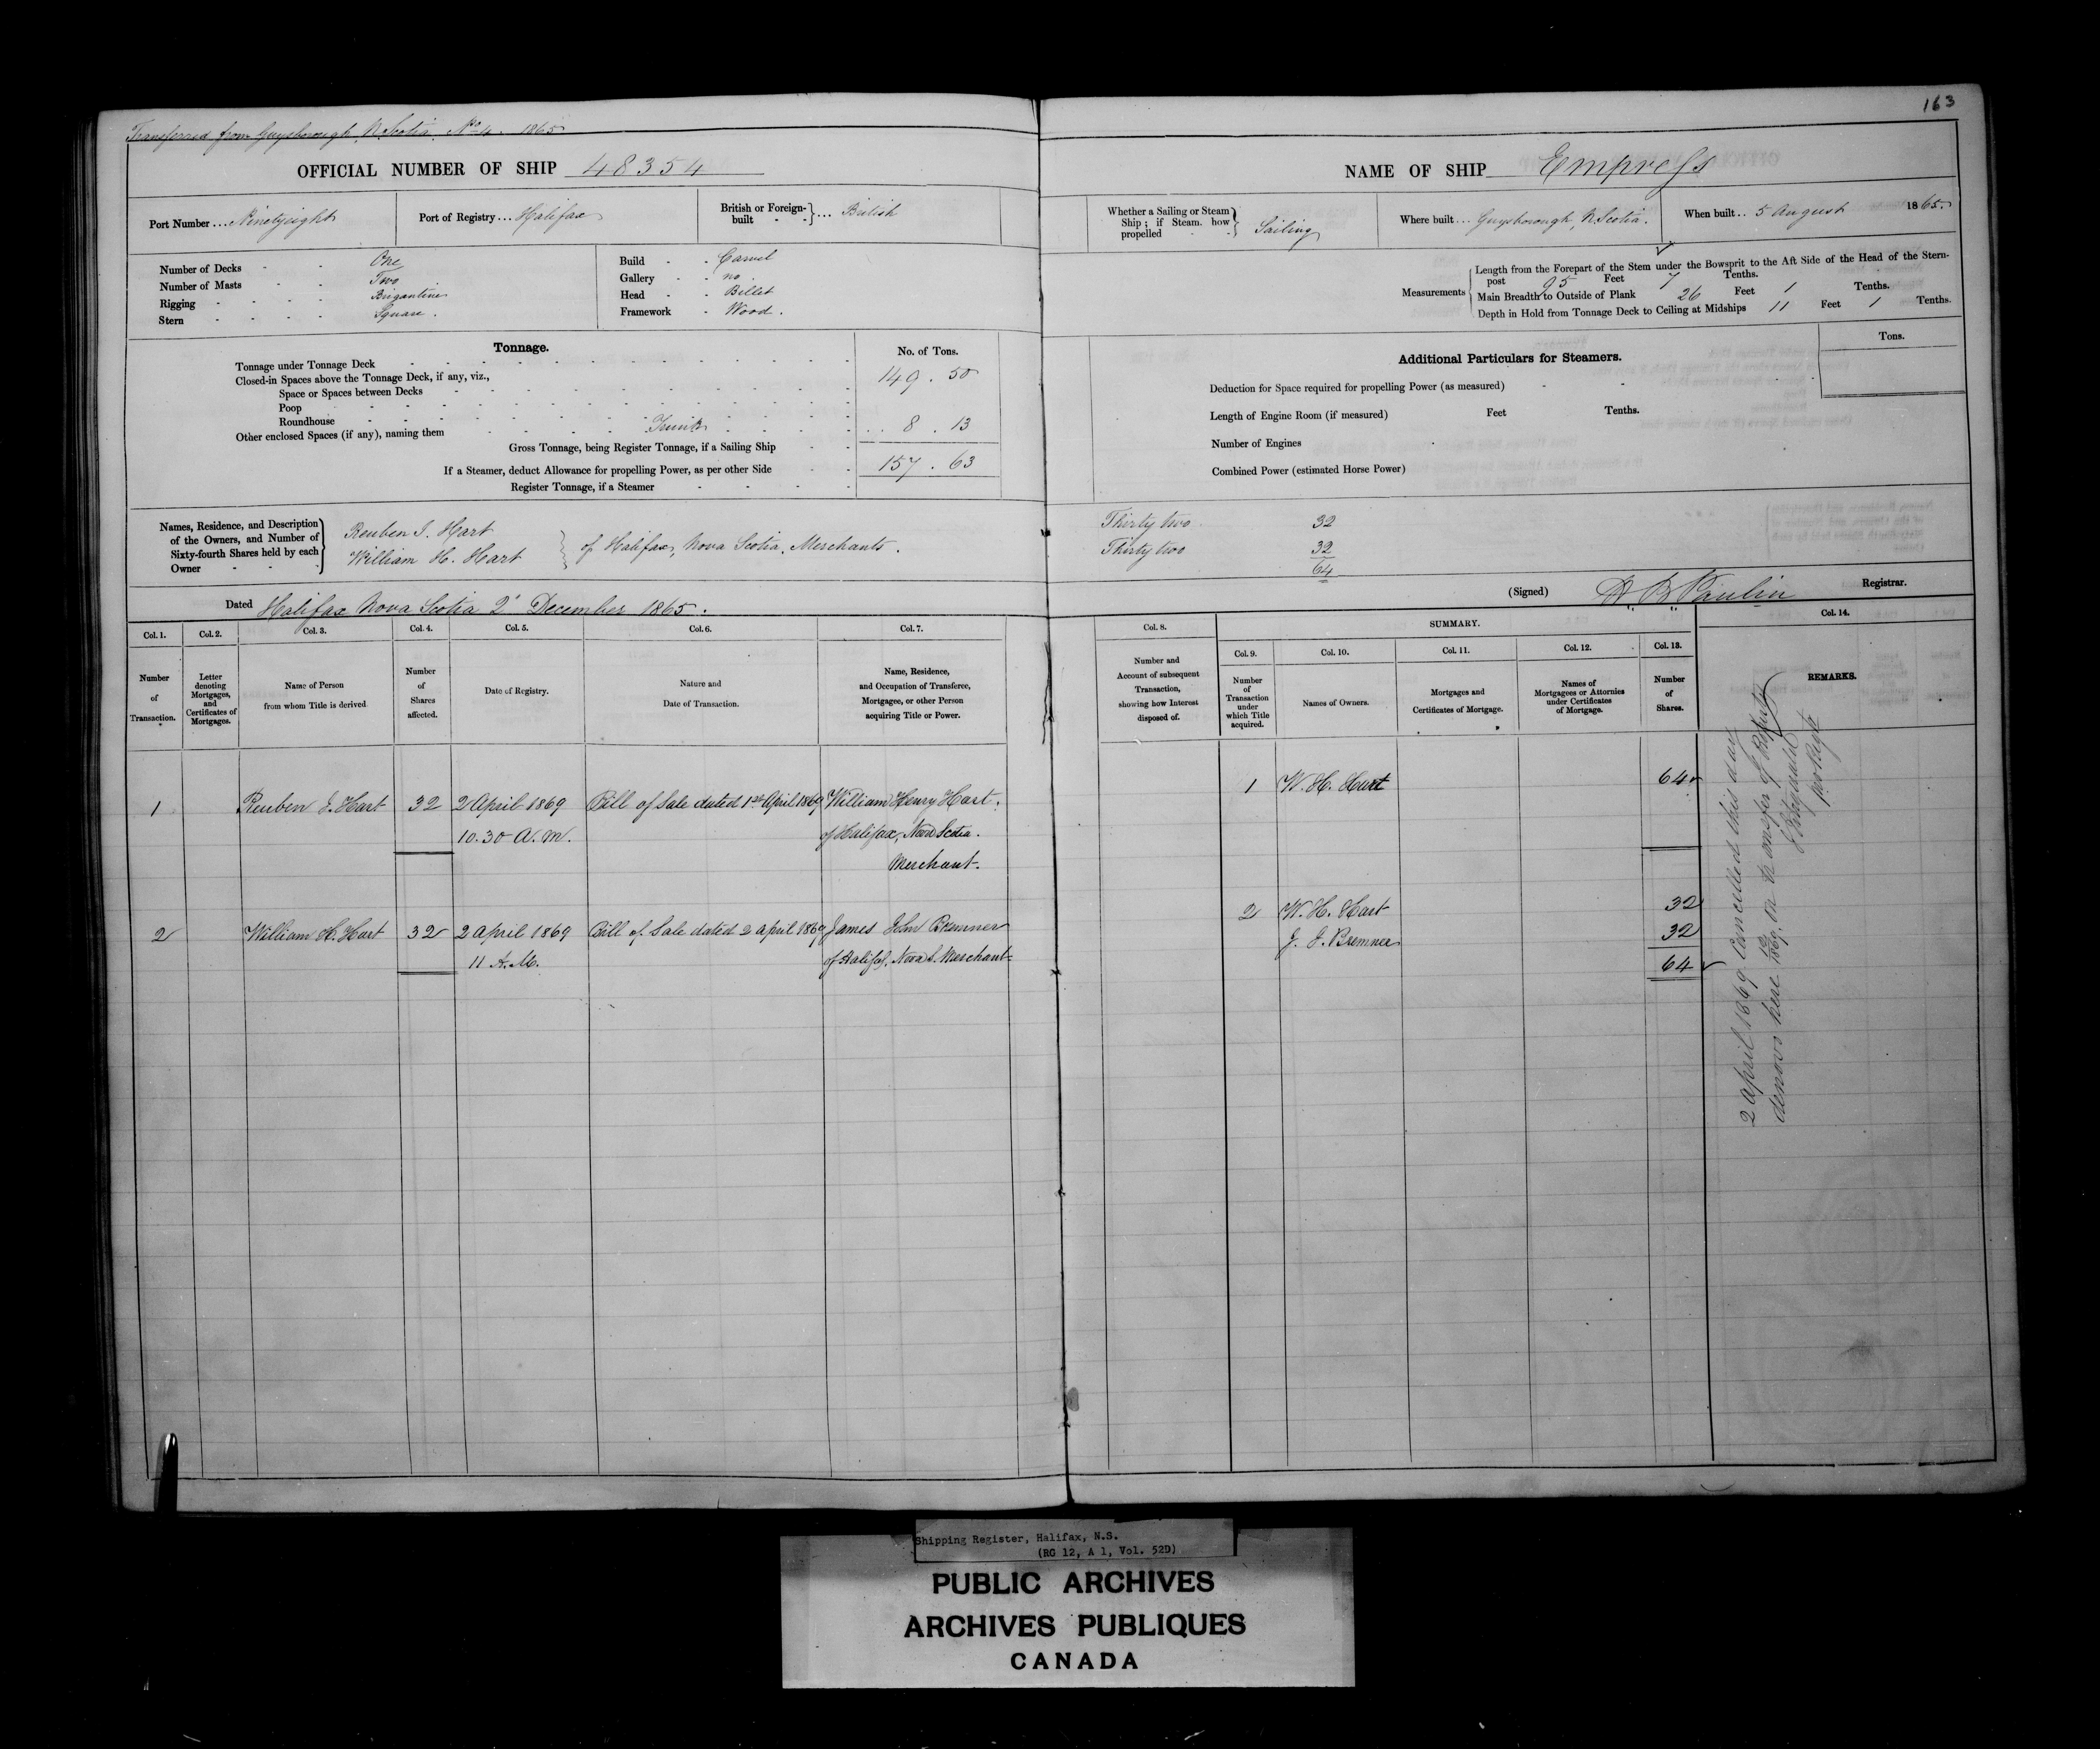 163
Transferred from Guysborough, N. Scotia No 4. 1865
OFFICIAL NUMBER OF SHIP 48354
Port Number ... Ninetyeight
Port of Registry ... Halifax
British or Foreign-built } ... British
Number of Decks - - One
Number of Masts - - Two
Rigging - - - - Brigantine
Stern - - - - Square.
Build - - Carvel
Gallery - - no
Head - - Billet
Framework - Wood.
Tonnage.
No. of Tons.
Tonnage under Tonnage Deck 149. 50
Closed-in Spaces above the Tonnage Deck, if any, viz.,
Space or Spaces between Decks
Poop
Roundhouse
Other enclosed Spaces (if any), naming them Trunk 8. 13
Gross Tonnage, being Register Tonnage, if a Sailing Ship 157. 63
If a Steamer, deduct Allowance for propelling Power, as per other Side
Register Tonnage, if a Steamer
Names, Residence, and Description of the Owners, and Number of Sixty-fourth Shares held by each Owner
Reuben I. Hart
William H. Hart
} of Halifax, Nova Scotia, Merchants.
Dated Halifax Nova Scotia 2d December 1865.
NAME OF SHIP Empress
Whether a Sailing or Steam Ship; if Steam. how propelled } Sailing
Where built ... Guysborough, N. Scotia.
When built .. 5 August 1865.
Measurements
Length from the Forepart of the Stem under the Bowsprit to the Aft Side of the Head of the Stern-
post 95 Feet 7 Tenths.
Main Breadth to Outside of Plank 26 Feet 1 Tenths.
Depth in Hold from Tonnage Deck to Ceiling at Midships 11 Feet 1 Tenths.
Additional Particulars for Steamers.
Tons.
Deduction for Space required for propelling Power (as measured)
Length of Engine Room (if measured) Feet Tenths.
Number of Engines
Combined Power (estimated Horse Power)
Thirty two 32
Thirty two 32
64
(Signed) H B Paulin Registrar.
Col. 1. Col. 2. Col. 3. Col. 4. Col. 5. Col. 6. Col. 7.
Number of Transaction.
Letter denoting Mortgages, and Certificates of Mortgages.
Name of Person from whom Title is derived
Number of Shares affected.
Date of Registry.
Nature and Date of Transaction.
Name, Residence, and Occupation of Transferee, Mortgagee, or other Person acquiring Title or Power.
1 Reuben I. Hart 32 2 April 1869 Bill of Sale dated 1st April 1869 William Henry Hart.
10.30 A.M. of Halifax, Nova Scotia.
Merchant.
2 William H. Hart 32 2 April 1869 Bill of Sale dated 2 April 1869 James John Bremner
11 A.M. of Halifax, Nova S. Merchant
Col. 8. SUMMARY. Col. 14.
Col. 9. Col. 10. Col. 11. Col. 12. Col. 13.
Number and Account of subsequent Transaction, showing how Interest disposed of.
Number of Transaction under which Title acquired.
Names of Owners.
Mortgages and Certificates of Mortgage.
Names of Mortgagees or Attornies under Certificates of Mortgage.
Number of Shares.
REMARKS.
1 W. H. Hart 64
2 W. H. Hart 32
J. J. Bremner 32
64
2 April 1869 Cancelled this day
denovo here 1869. on transfer of
Shipping Register, Halifax, N.S.
(RG 12, A 1, Vol. 52D)
PUBLIC ARCHIVES
ARCHIVES PUBLIQUES
CANADA